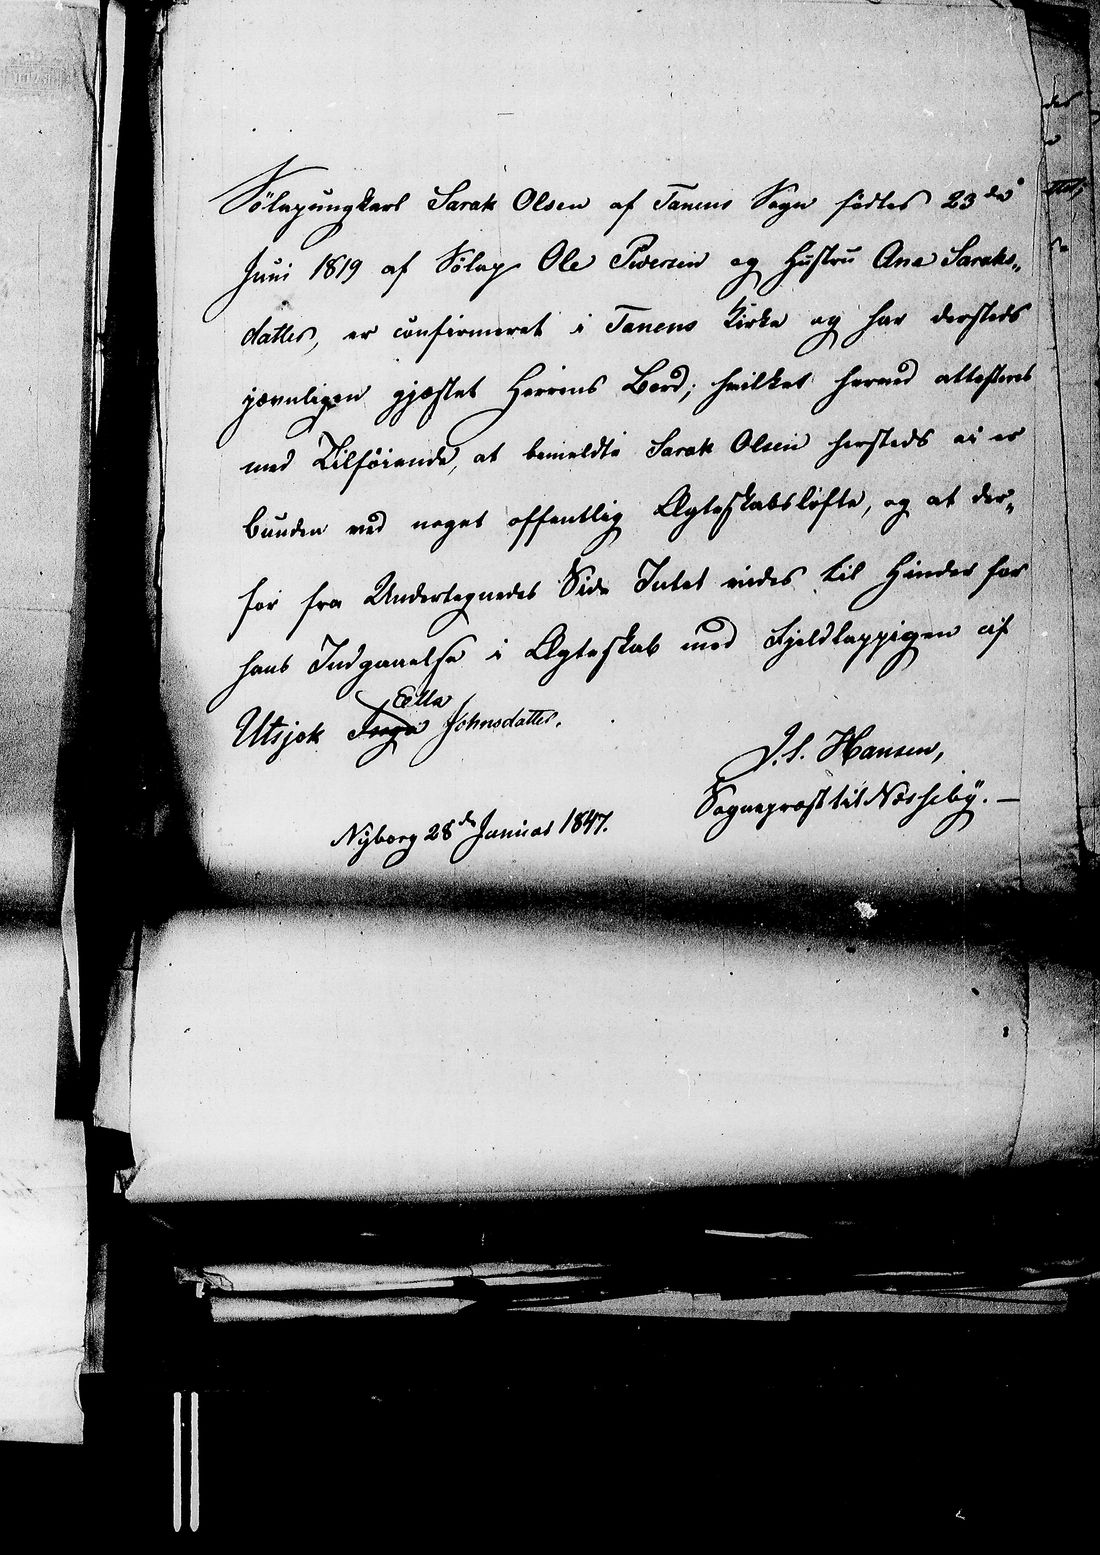 Sølapungkarl Sarak Olsen af Tanens Sogn fødtes 23de
Juni 1819 af Sølap Ole Pedersen og Hustru Ane Saraks„
datter, er confirmeret i Tanens Kirke og har dersteds
jævnligen gjæstet Herrens Bord; hvilket herved attesteres
med Tilføiende, at bemeldte Sarak Olsen hersteds ei er
bunden ved noget offentlig Ægteskabsløfte, og at der„
for fra Undertegnedes Side Intet vides til Hinder for
hans Indgaaelse i Ægteskab med Fjeldlappigen af
Ella
Utsjok Johnsdatter.
J. S. Hansen,
Sognepræst til Næsseby. —
Nyborg 28de Januar 1847.